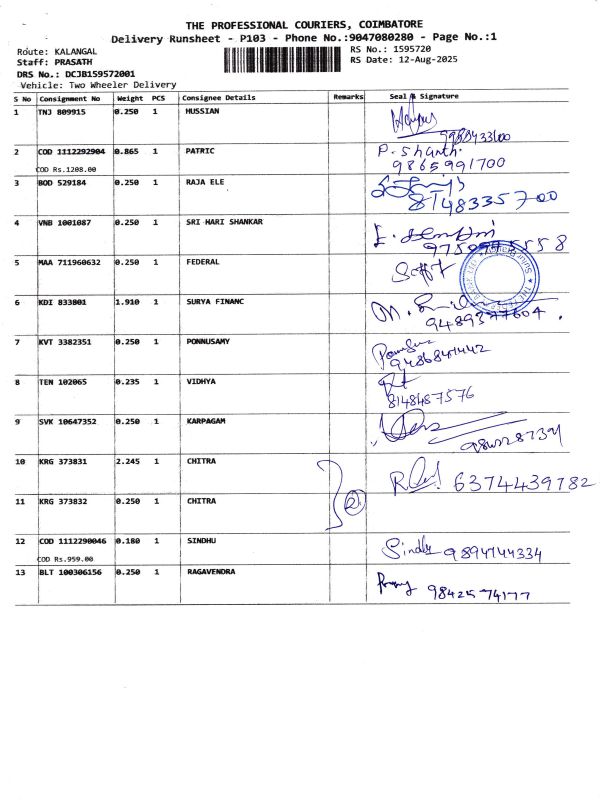 THE PROFESSIONAL COURIERS, COIMBATORE
Delivery Runsheet - P103 - Phone No.:9047080280 - Page No.:1
Route: KALANGAL
RS No.: 1595720
Staff: PRASATH
RS Date: 12-Aug-2025
DRS No.: DCJB159572001
Vehicle: Two Wheeler Delivery
S No Consignment No Weight PCS Consignee Details Remarks Seal & Signature
1 TNJ 809915 0.250 1 HUSSIAN
2 COD 1112292904 0.865 1 PATRIC P. Shanthi
COD Rs.1208.00 9865991700
3 BOD 529184 0.250 1 RAJA ELE
8148335700
4 VNB 1001087 0.250 1 SRI HARI SHANKAR
5 MAA 711960632 0.250 1 FEDERAL
6 KDI 833801 1.910 1 SURYA FINANC
9489377604.
7 KVT 3382351 0.250 1 PONNUSAMY
9486841442
8 TEN 102065 0.235 1 VIDHYA
8148487576
9 SVK 10647352 0.250 1 KARPAGAM
10 KRG 373831 2.245 1 CHITRA 6374439782
11 KRG 373832 0.250 1 CHITRA 2
12 COD 1112290046 0.180 1 SINDHU Sindhu 9894744334
COD Rs.959.00
13 BLT 100306156 0.250 1 RAGAVENDRA 9842574177